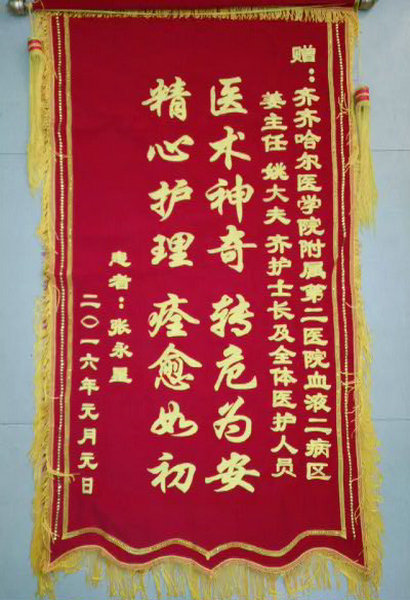 赠：齐齐哈尔医学院附属第二医院血液二病区
姜主任 姚大夫 齐护士长及全体医护人员
医术神奇 转危为安
精心护理 痊愈如初
患者：张永星
二〇一六年元月元日